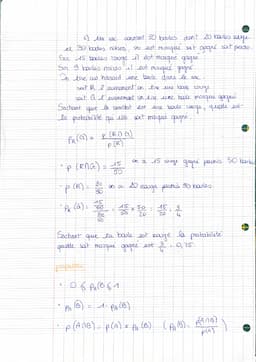 1) Un sac contient 50 boules dont 20 boules rouges
et 30 boules noires, où est marqué soit gagné soit perdu.
Sur 15 boules rouge il est marqué gagné
Sur 9 boules noires il est marqué gagné
On tire au hasard une boule dans le sac
soit R l'événement on tire une boule rouge
soit G l'événement on tire une boule marqué gagné
Sachant que la boule est une boule rouge, quelle est
la probabilité qu'elle soit marqué gagné
P_R(G) = p(R∩G) / p(R)
• p(R∩G) = 15/50 on a 15 rouge gagné parmis 50 boules
• p(R) = 20/50 on a 20 rouge parmis 50 boules
• P_R(G) = (15/50)/(20/50) = 15/50 × 50/20 = 15/20 = 3/4
Sachant que la boule est rouge la probabilité
qu'elle soit marqué gagné est 3/4 = 0,75
propriétés
• 0 ≤ P_A(B) ≤ 1
• P_A(B̅) = 1 - P_A(B)
• p(A∩B) = p(A) × P_A(B) (P_A(B) = p(A∩B)/p(A))